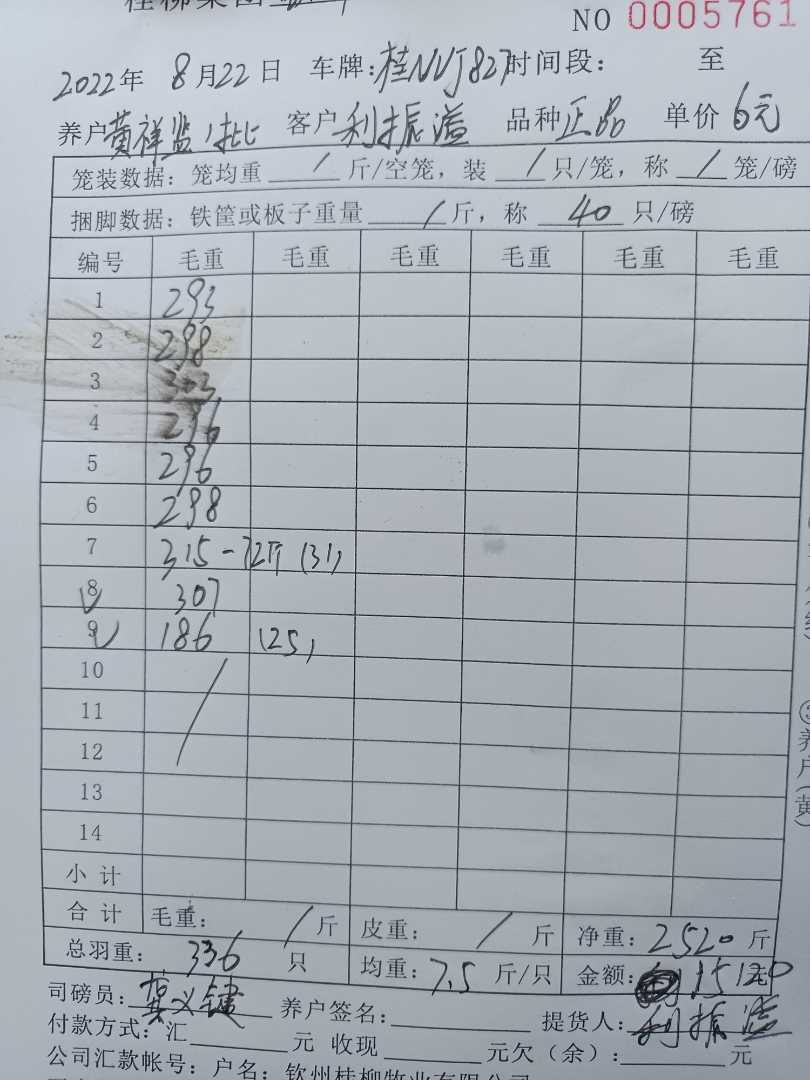 桂柳集团
NO 0005761
2022年 8月22日 车牌:桂NVJ827时间段: 至
养户黄祥监1批 客户利振溢 品种正品 单价6元
笼装数据: 笼均重 / 斤/空笼, 装 / 只/笼, 称 / 笼/磅
捆脚数据: 铁筐或板子重量 / 斤, 称 40 只/磅
编号 毛重 毛重 毛重 毛重 毛重 毛重
1 293
2 298
3 303
4 296
5 296
6 298
7 315-72斤 (31)
8 307
9 186 (25)
10
11
12
13
14
小计
合计 毛重: / 斤 皮重: / 斤 净重: 2520 斤
总羽重: 336 只 均重: 7.5 斤/只 金额: 15120 元
司磅员: 莫义键 养户签名: 提货人: 利振溢
付款方式: 汇 元 收现 元欠(余): 元
公司汇款帐号: 户名: 钦州桂柳牧业有限公司
③养户(黄)